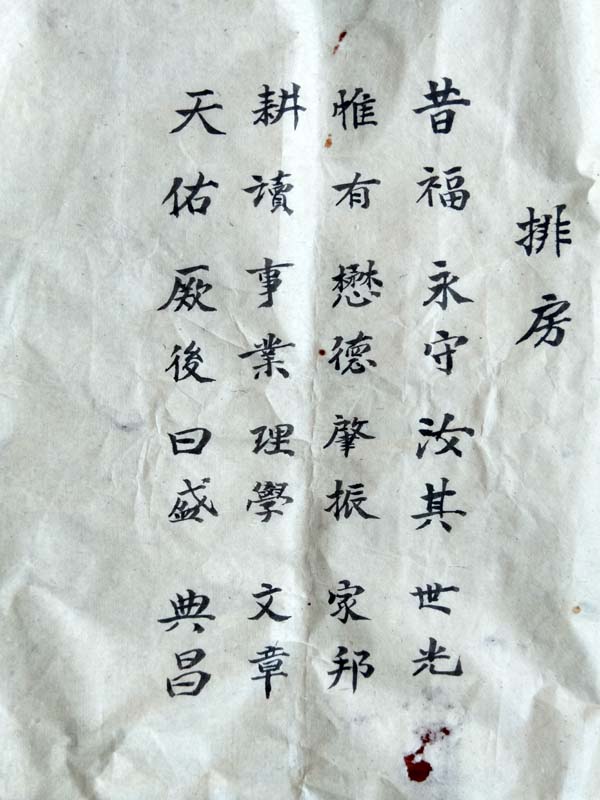 排房
昔福永守汝其世光
惟有懋德肇振家邦
耕讀事業理學文章
天佑厥後曰盛典昌